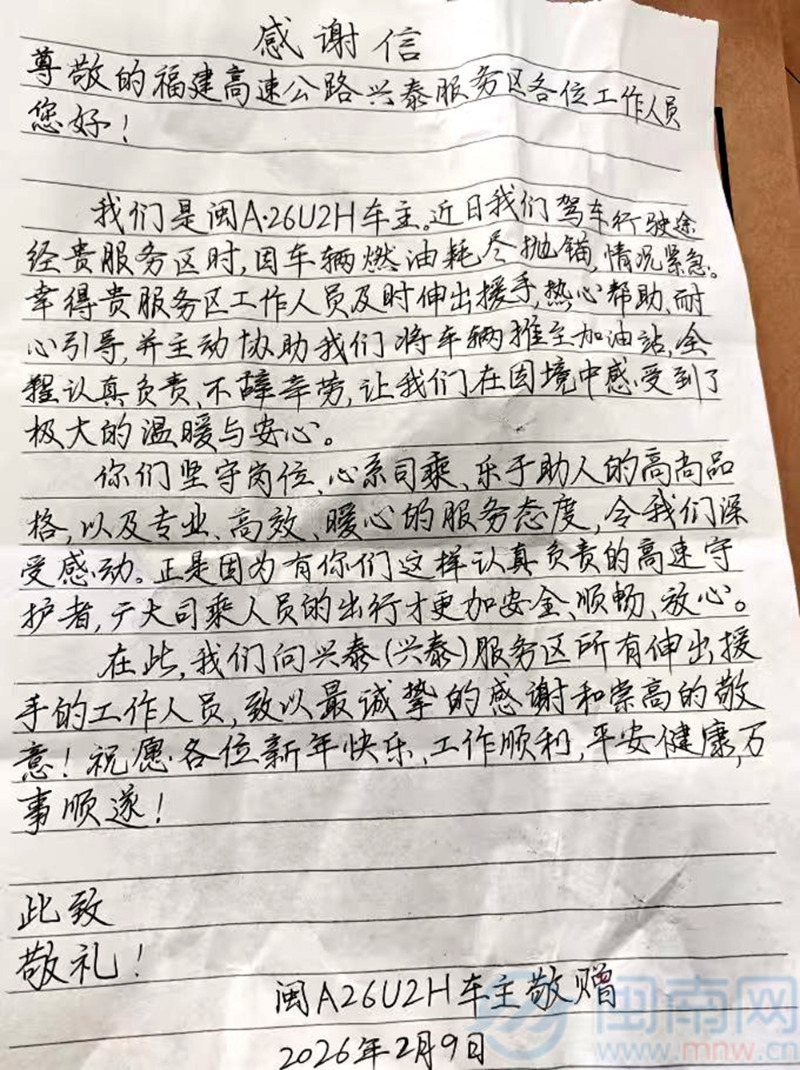 感谢信
尊敬的福建高速公路兴泰服务区各位工作人员
您好！
我们是闽A·26U2H车主。近日我们驾车行驶途
经贵服务区时,因车辆燃油耗尽抛锚,情况紧急。
幸得贵服务区工作人员及时伸出援手,热心帮助、耐
心引导,并主动协助我们将车辆推至加油站,全
程认真负责、不辞辛劳,让我们在困境中感受到了
极大的温暖与安心。
你们坚守岗位、心系司乘、乐于助人的高尚品
格,以及专业、高效、暖心的服务态度,令我们深
受感动。正是因为有你们这样认真负责的高速守
护者,广大司乘人员的出行才更加安全、顺畅、放心。
在此,我们向兴泰(兴泰)服务区所有伸出援
手的工作人员,致以最诚挚的感谢和崇高的敬
意！祝愿各位新年快乐、工作顺利,平安健康,万
事顺遂！
此致
敬礼！
闽A26U2H车主敬赠
2026年2月9日
闽南网
www.mnw.cn